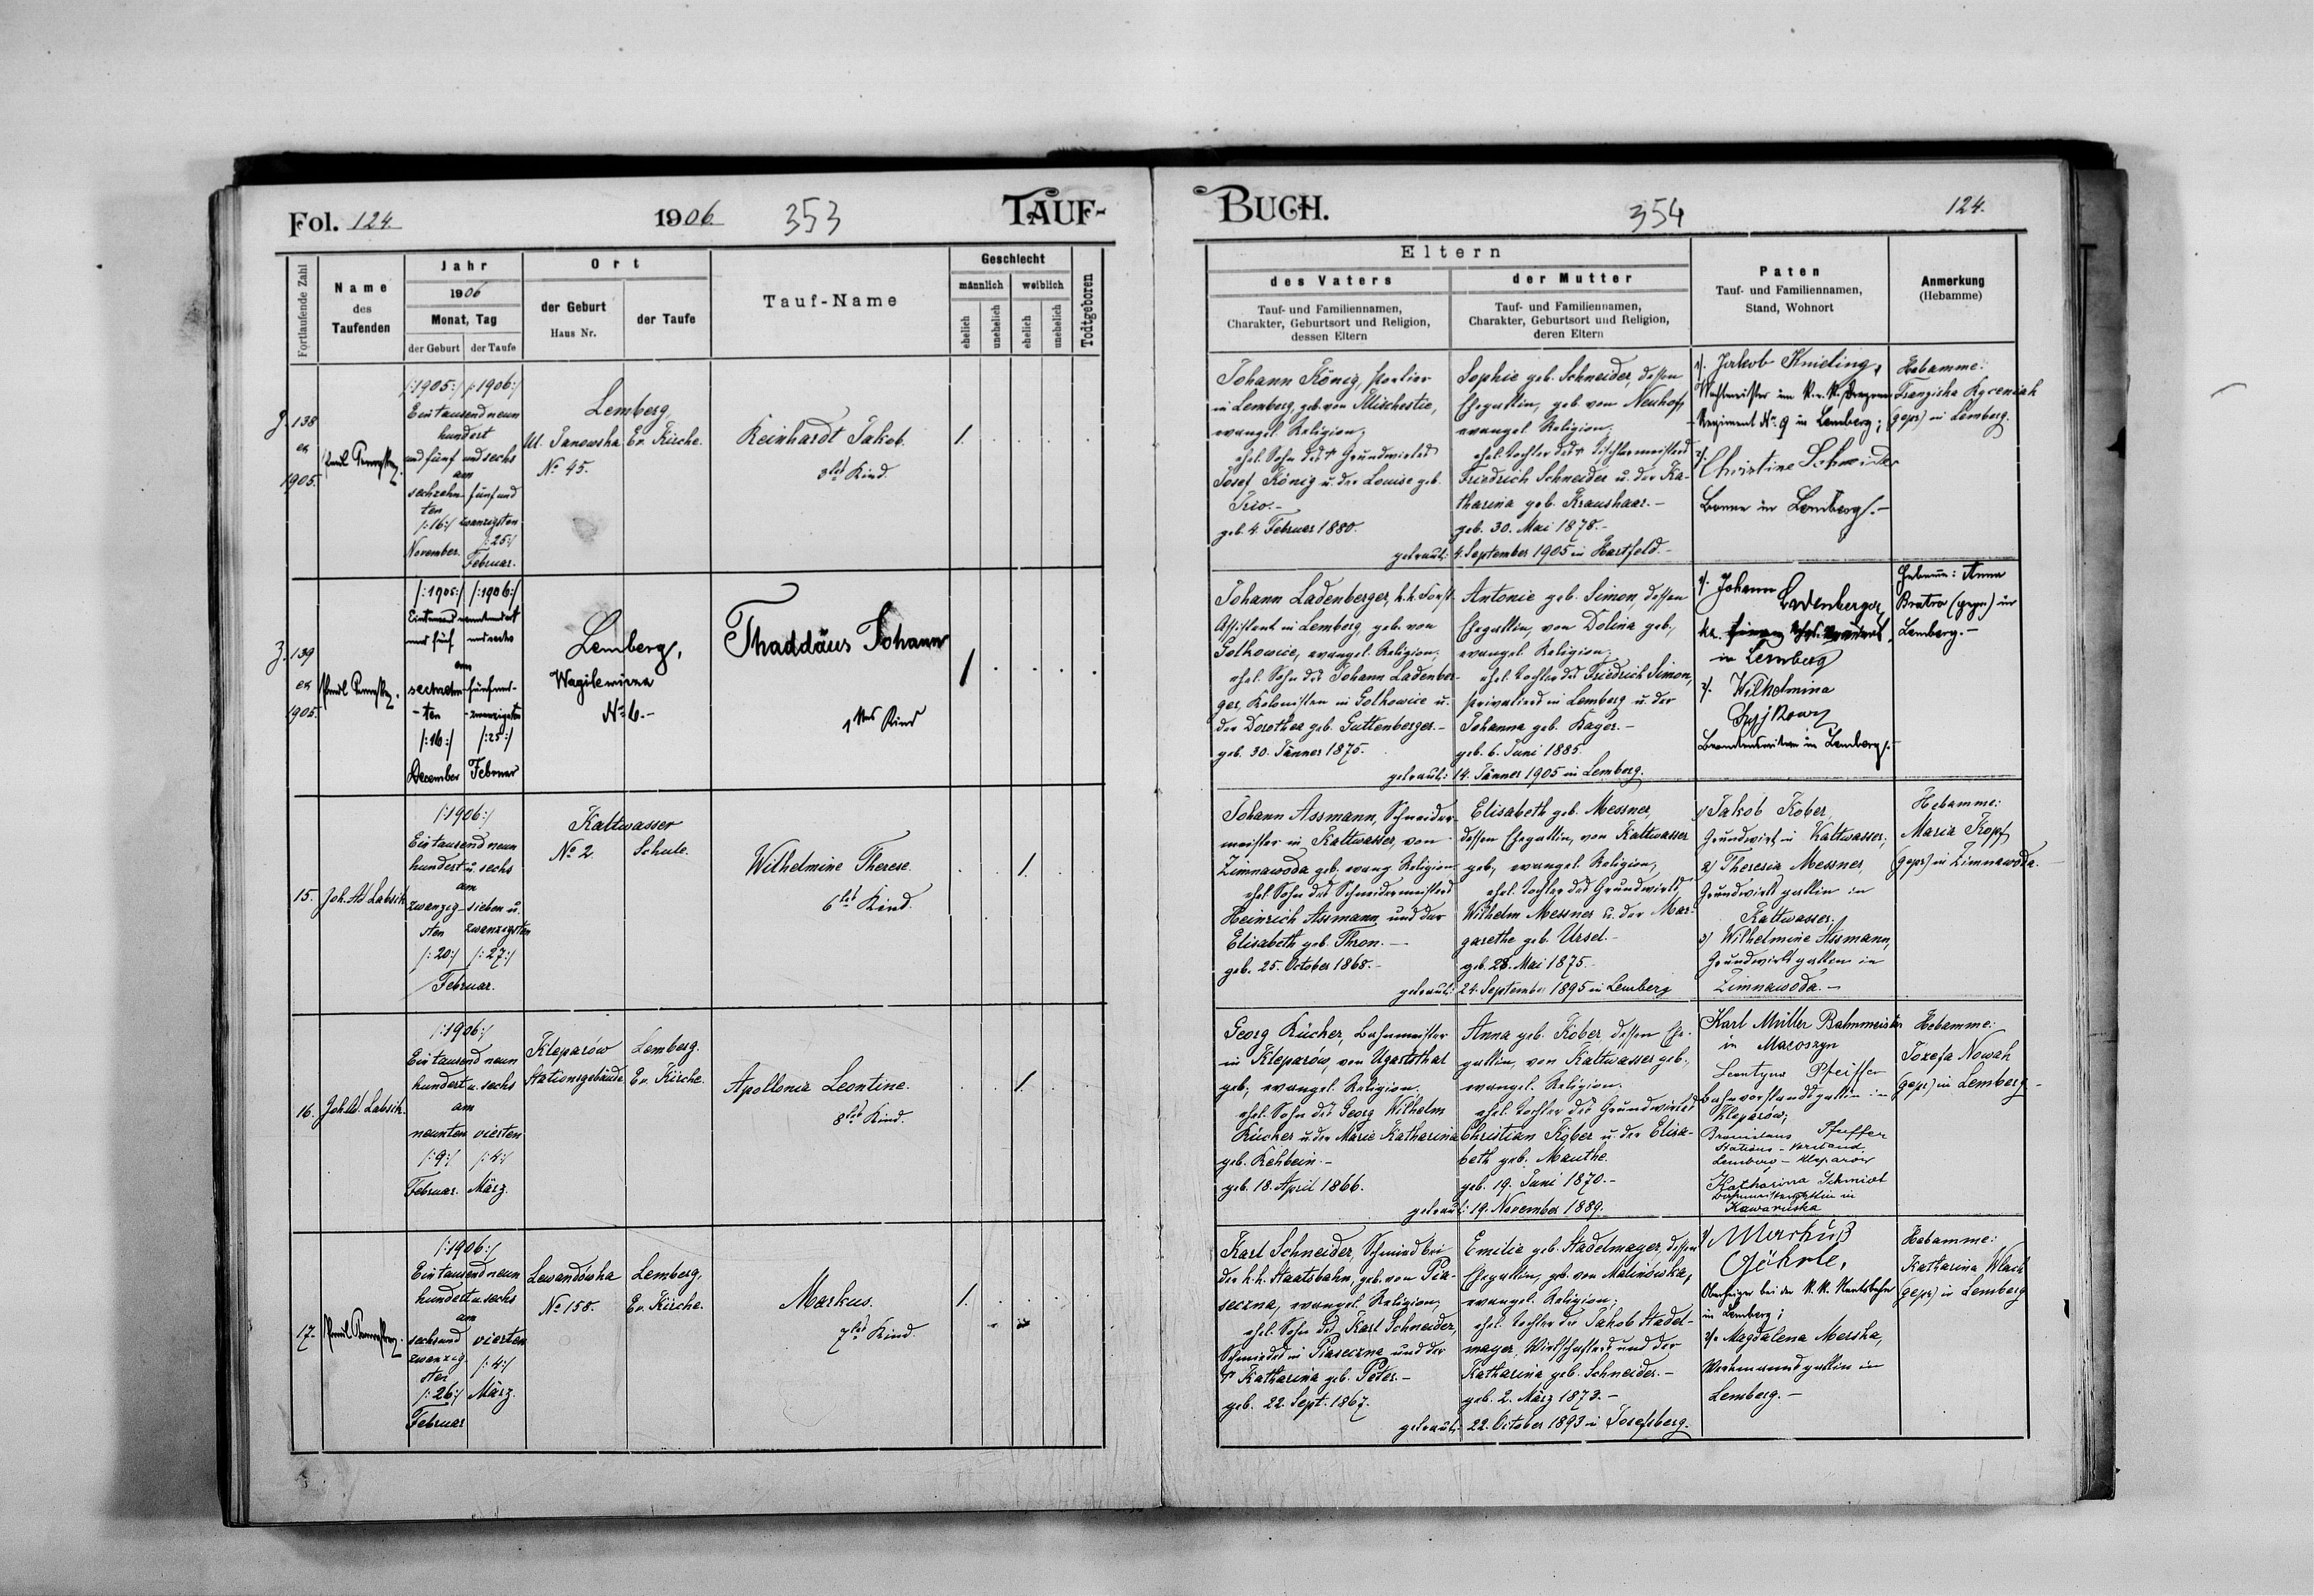 Fol. 124.
1906.
353
TAUF-
Fortlaufende Zahl
Name
des
Taufenden
Jahr
1906
Monat, Tag
der Geburt
der Taufe
Ort
der Geburt
Haus Nr.
der Taufe
Tauf-Name
Geschlecht
männlich
weiblich
ehelich
unehelich
ehelich
unehelich
Todtgeboren
138
ex
1905.
/:1905:/ /:1906:/
Eintausend neun
hundert
und fünf und sechs
am
sechzehn- fünf und
ten
/:16:/ zwanzigsten
November. /:25:/
Februar.
Lemberg,
Ul. Janowska Ev. Kirche.
No 45.
Reinhardt Jakob.
3tes Kind.
1.
139
ex
1905.
/:1905:/ /:1906:/
am
fünfund-
-ten -zwanzigsten
/:16:/ /:25:/
December Februar
Lemberg,
No 6.-
Thaddäus Johann
1tes Kind
1
15.
Joh. Ad. Labsik
/:1906:/
Eintausend neun
hundert u. sechs
am
zwanzig- sieben u.
sten zwanzigsten
/:20:/ /:27:/
Februar.
Kaltwasser
No 2. Schule.
Wilhelmine Therese.
6tes Kind.
1.
16.
Joh. Ad. Labsik.
/:1906:/
Eintausend neun
hundert u. sechs
am
neunten vierten
/:9:/ /:4:/
Februar. März.
Kleparów Lemberg.
Stationsgebäude Ev. Kirche.
Apollonia Leontine.
8tes Kind.
1.
17.
/:1906:/
Eintausend neun
hundert u. sechs
am
sechsund vierten
zwanzig-
sten /:4:/
/:26:/ März.
Februar
Lewandówka Lemberg,
No 158. Ev. Kirche.
Markus.
7tes Kind.
1.
BUCH.
354
124.
Eltern
des Vaters
Tauf- und Familiennamen,
Charakter, Geburtsort und Religion,
dessen Eltern
der Mutter
Tauf- und Familiennamen,
Charakter, Geburtsort und Religion,
deren Eltern
Paten
Tauf- und Familiennamen,
Stand, Wohnort
Anmerkung
(Hebamme)
Johann König,
in Lemberg, geb. von
evangel. Religion;
ehel. Sohn des † Grundwirtes
Josef König u. der Louise geb.
geb. 4. Februar 1880.
Sophie geb. Schneider, dessen
Ehegattin, geb. von Neuhof,
evangel. Religion,
ehel. Tochter des † Tischlermeisters
Friedrich Schneider u. der Ka-
tharina geb. Kraushaar.-
geb. 30. Mai 1878.-
getraut: 4. September 1905 in Hartfeld.-
1/. Jakob Knieling,
Wachtmeister im K. u. K.
Regiment No 9 in Lemberg;
2/. Christine Schneider
Bonne in Lemberg.-
Hebamme:
Franziska
(gepr) in Lemberg.
Johann Ladenberger, k.k. Forst-
Assistent in Lemberg, geb. von
Golkowice, evangel. Religion,
ehel. Sohn des Johann Ladenber-
ger, Kolonisten in Golkowice u.
der Dorothea geb. Guttenberger.-
geb. 30. Jänner 1875.
Antonie geb. Simon, dessen
Ehegattin, von Dolina geb.,
evangel. Religion,
ehel. Tochter des Friedrich Simon,
Privatiers in Lemberg u. der
Johanna geb. Kayer.-
geb. 6. Juni 1885.
getraut: 14. Jänner 1905 in Lemberg.
1/. Johann
Ladenberger,
in Lemberg
2/. Wilhelmina
in Lemberg.-
Anna
(gepr) in
Lemberg.-
Johann Assmann, Schneider-
meister in Kaltwasser, von
Zimnawoda geb. evang. Religion
ehel. Sohn des Schneidermeisters
Heinrich Assmann und der
Elisabeth geb. Thron.-
geb. 25. October 1868.-
Elisabeth geb. Messner,
dessen Ehegattin, von Kaltwasser
geb., evangel. Religion,
ehel. Tochter des Grundwirts
Wilhelm Messner u. der Mar-
garethe geb. Ursel.-
geb. 28. Mai 1875.-
getraut: 24. September 1895 in Lemberg
1/ Jakob Kober,
Grundwirt in Kaltwasser;
2/ Theresia Messner,
Grundwirtsgattin in
Kaltwasser;
3/ Wilhelmine Assmann,
Grundwirtsgattin in
Zimnawoda.-
Hebamme:
Maria Kopf
(gepr) in Zimnawoda.
Georg Kücher, Bahnmeister
in Kleparów, von Ugartsthal
geb., evangel. Religion,
ehel. Sohn des Georg Wilhelm
Kücher u. der Marie Katharina
geb. Rehbein.-
geb. 18. April 1866.
Anna geb. Kober, dessen Ehe-
gattin, von Kaltwasser geb.,
evangel. Religion.
ehel. Tochter des Grundwirtes
Christian Kober u. der Elisa-
beth geb. Manthe.
geb. 19. Juni 1870.-
getraut: 19. November 1889.
Karl Müller Bahnmeister
in Macoszyn
Leontyna Pfeiffer
Bahnvorstandsgattin in
Kleparów;
Bronislaus Pfeiffer
Stations-Vorstand,
Lemberg-Kleparow
Katharina Schmidt
Bahnmeistersgattin in
Rawaruska
Hebamme:
Jozefa Nowak
(gepr) in Lemberg
Karl Schneider, Schmied bei
der k.k. Staatsbahn, geb. von Pia-
seczna, evangel. Religion;
ehel. Sohn des Karl Schneider,
Schmiedes in Piaseczna und der
† Katharina geb. Peter.-
geb. 22. Sept. 1867.
Emilie geb. Stadelmayer, dessen
Ehegattin, geb. von Malinówka,
evangel. Religion;
ehel. Tochter des Jakob Stadel-
mayer, Wirtschafters und der
Katharina geb. Schneider.-
geb. 2. März 1873.-
getraut: 22. October 1893 in Josefsberg.
1/ Markuß
Göhrle,
Oberheizer bei der K.K. Staatsbahn
in Lemberg;
2/. Magdalena Merska,
Werkmannsgattin in
Lemberg.-
Hebamme:
Katharina Wlach
(gepr) in Lemberg